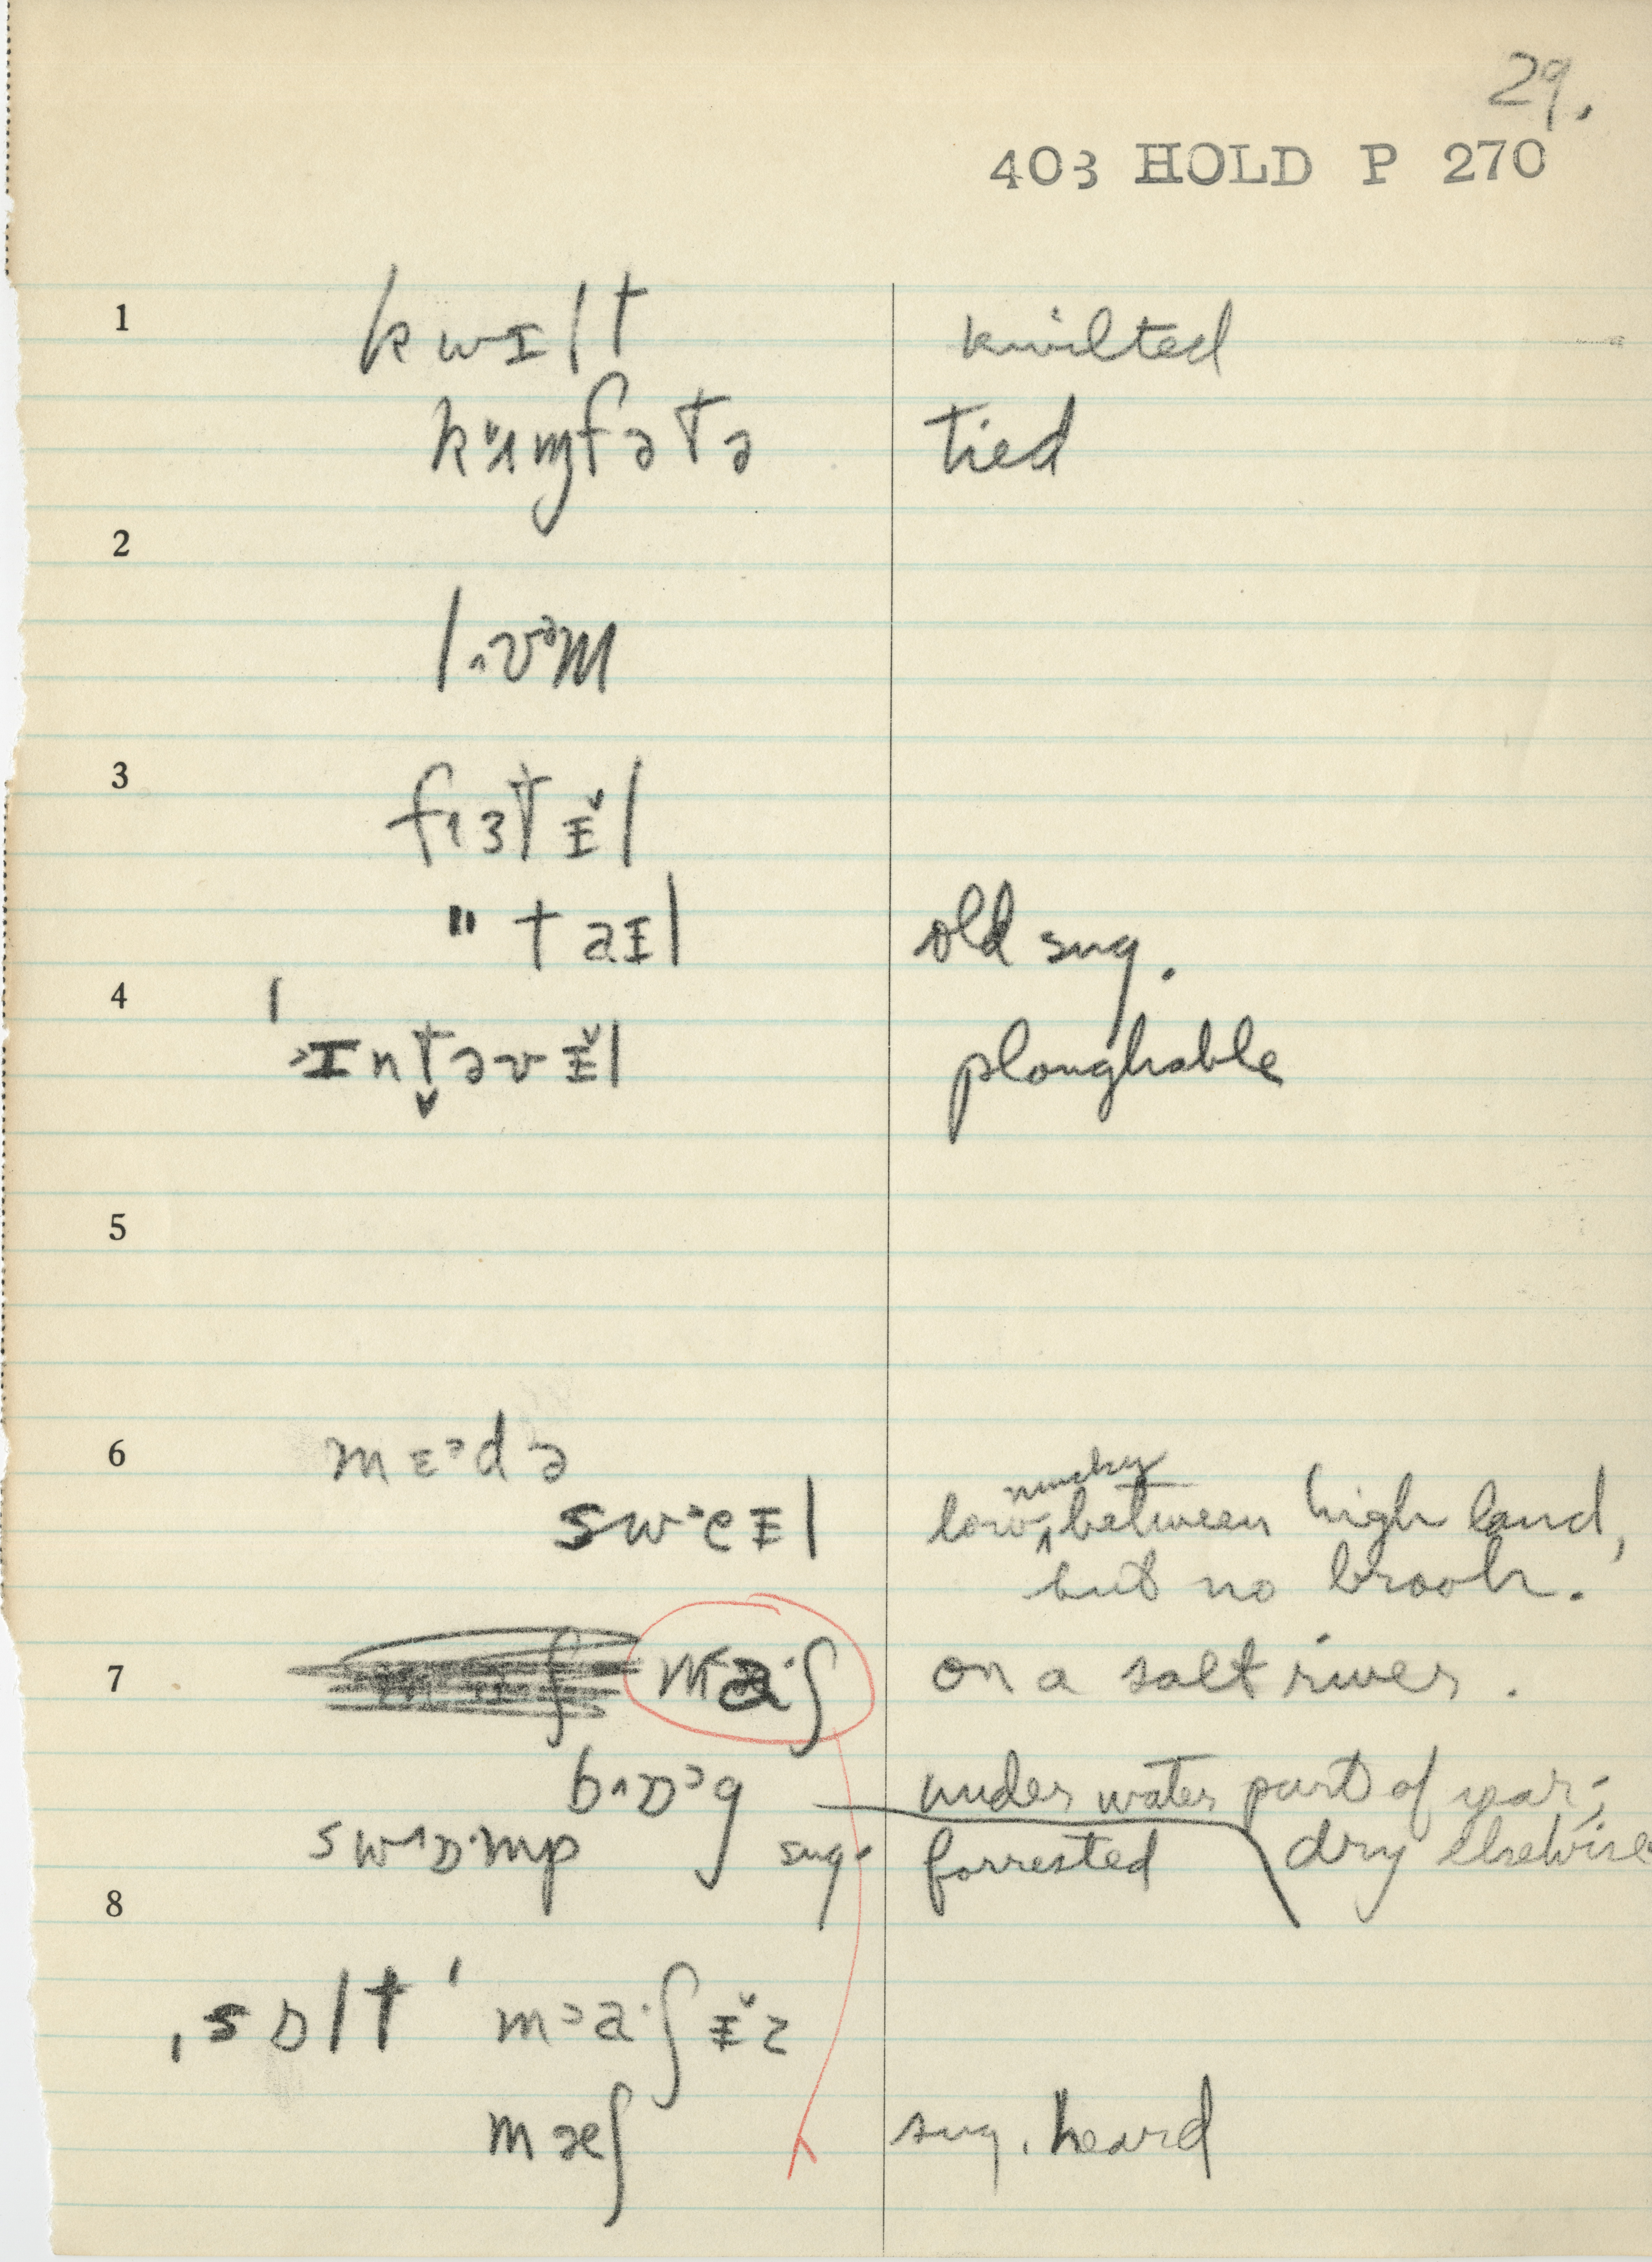 29.
403 HOLD P 270
1 kwɪlt kwilted
kʌm̡fətə tied
2
lʌvᵊm
3
fɜtɪ̌l
" taɪl old sug.
4 ˈ
ɪnt̬əvɪ̌l ploughable
5
6 mɛᵊdə mucky
swˑeɪl low, between high land,
but no brook.
7 maˑʃ on a salt river.
bɒᵊg under water part of year;
swɒˑmp sug. forrested dry elsewise
8
ˌsɒlt ˈmaˑʃɪ̌z
mæʃ sug. heard